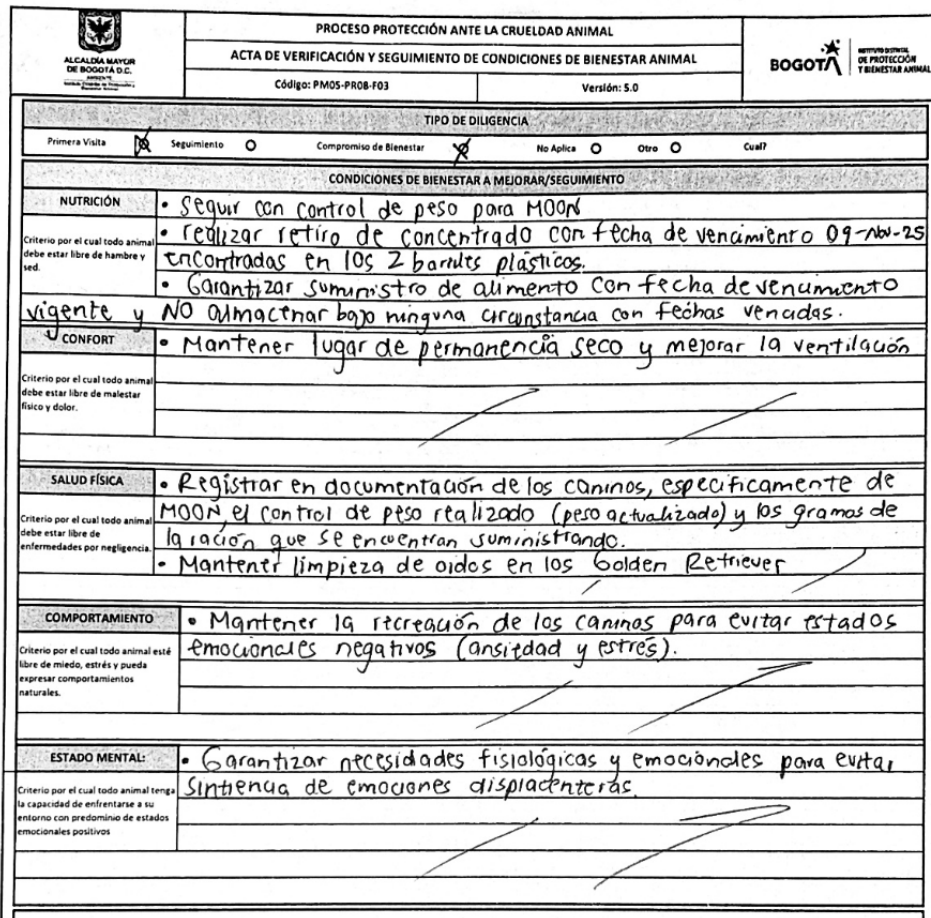 PROCESO PROTECCIÓN ANTE LA CRUELDAD ANIMAL
ALCALDÍA MAYOR
DE BOGOTÁ D.C.
AMBIENTE
ACTA DE VERIFICACIÓN Y SEGUIMIENTO DE CONDICIONES DE BIENESTAR ANIMAL
Código: PM05-PR08-F03 Versión: 5.0
BOGOTÁ
INSTITUTO DISTRITAL
DE PROTECCIÓN
Y BIENESTAR ANIMAL
TIPO DE DILIGENCIA
Primera Visita Seguimiento Compromiso de Bienestar No Aplica Otro Cual?
CONDICIONES DE BIENESTAR A MEJORAR/SEGUIMIENTO
NUTRICIÓN
Criterio por el cual todo animal
debe estar libre de hambre y
sed.
• Seguir con control de peso para MOON
• realizar retiro de concentrado con fecha de vencimiento 09-Nov-25
encontradas en los 2 barriles plásticos.
• Garantizar suministro de alimento con fecha de vencimiento
vigente y NO almacenar bajo ninguna circunstancia con fechas vencidas.
CONFORT
Criterio por el cual todo animal
debe estar libre de malestar
físico y dolor.
• Mantener lugar de permanencia seco y mejorar la ventilación
SALUD FÍSICA
Criterio por el cual todo animal
debe estar libre de
enfermedades por negligencia.
• Registrar en documentación de los caninos, especificamente de
MOON, el control de peso realizado (peso actualizado) y los gramos de
la ración que se encuentran suministrando.
• Mantener limpieza de oidos en los Golden Retriever
COMPORTAMIENTO
Criterio por el cual todo animal esté
libre de miedo, estrés y pueda
expresar comportamientos
naturales.
• Mantener la recreación de los caninos para evitar estados
emocionales negativos (ansiedad y estrés).
ESTADO MENTAL:
Criterio por el cual todo animal tenga
la capacidad de enfrentarse a su
entorno con predominio de estados
emocionales positivos
• Garantizar necesidades fisiológicas y emociónales para evitar
Sintiencia de emociones displacenteras.